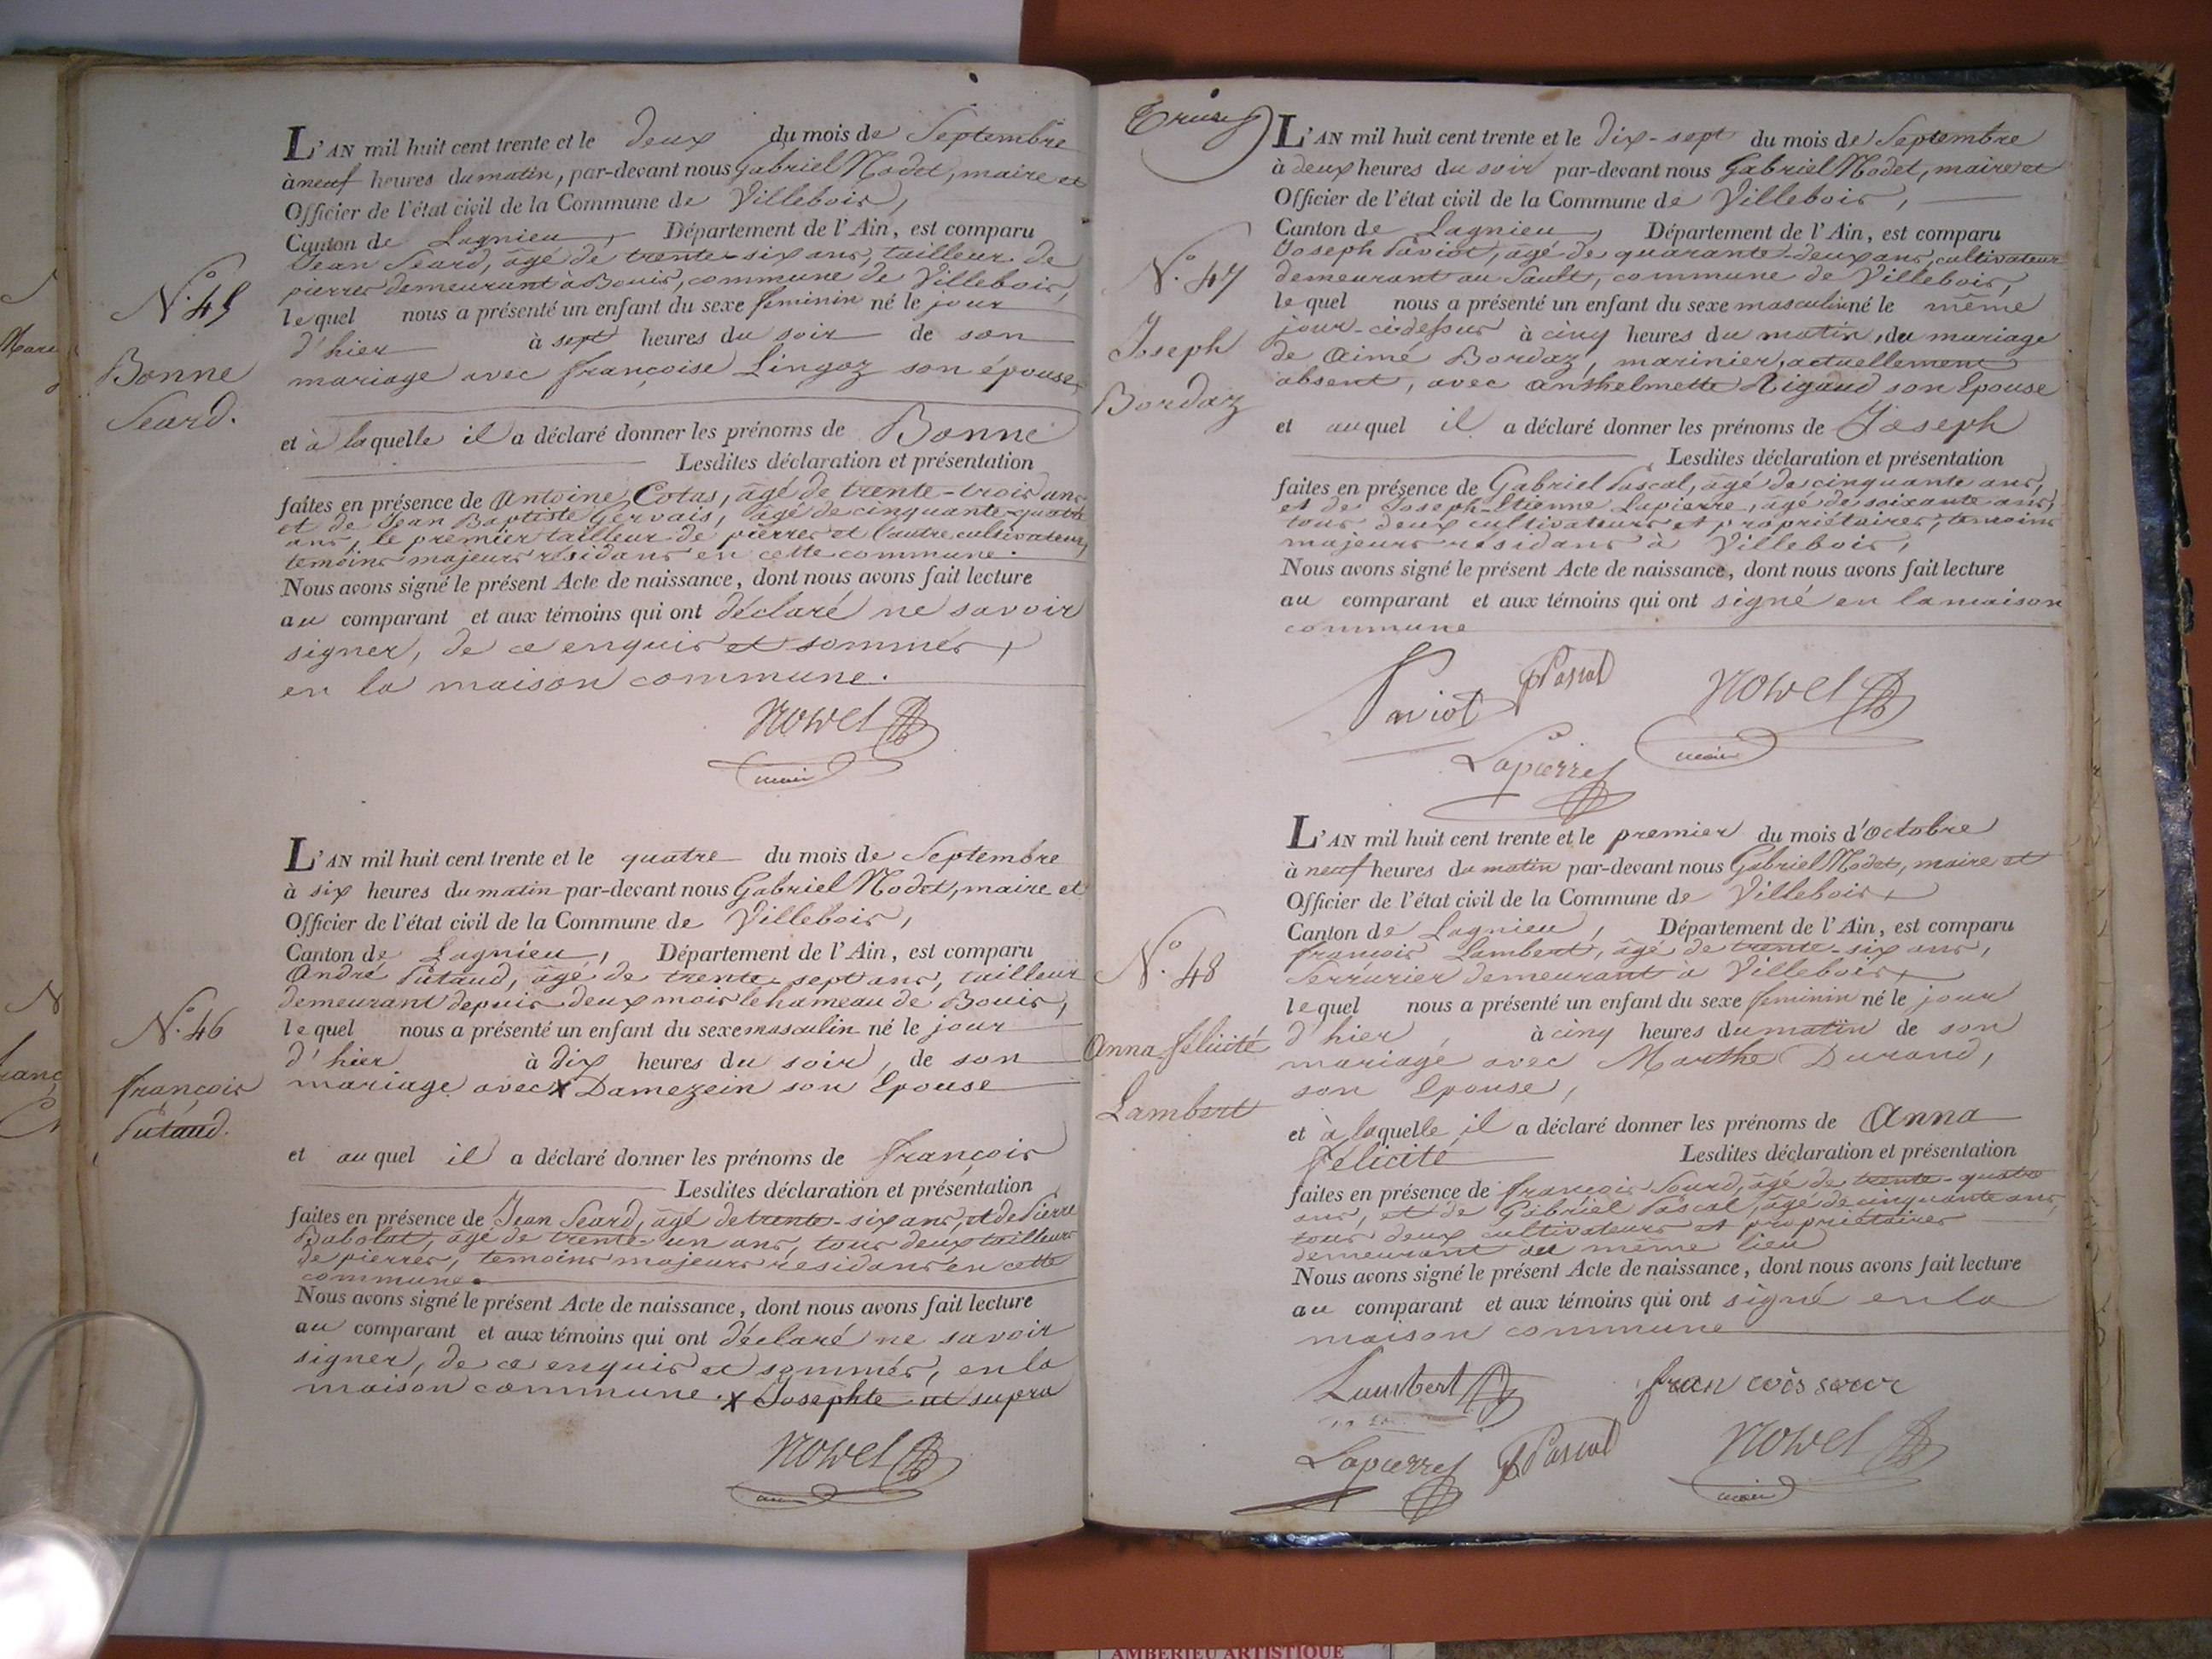 N.° 45
Bonne
Seard.
L'AN mil huit cent trente et le deux du mois de Septembre
à neuf heures du matin, par-devant nous Gabriel Nodet, maire et
Officier de l'état civil de la Commune de Villebois,
Canton de Lagnieu, Département de l'Ain, est comparu
Jean Seard, âgé de trente-six ans, tailleur de
pierres demeurant à Bouis, commune de Villebois,
lequel nous a présenté un enfant du sexe féminin né le jour
d'hier à sept heures du soir de son
mariage avec françoise Lingoz son épouse,
et à laquelle il a déclaré donner les prénoms de Bonne
Lesdites déclaration et présentation
faites en présence de Antoine Cotas, âgé de trente-trois ans
et de Jean Baptiste Gervais, âgé de cinquante-quatre
ans, le premier tailleur de pierres et l'autre cultivateur,
temoins majeurs résidans en cette commune.
Nous avons signé le présent Acte de naissance, dont nous avons fait lecture
au comparant et aux témoins qui ont déclaré ne savoir
signer, de ce enquis et sommés,
en la maison commune.
Nowet
maire
N.° 46
françois
Putaud.
L'AN mil huit cent trente et le quatre du mois de Septembre
à six heures du matin par-devant nous Gabriel Nodet, maire et
Officier de l'état civil de la Commune de Villebois,
Canton de Lagnieu, Département de l'Ain, est comparu
André Putaud, âgé de trente-sept ans, tailleur
demeurant depuis deux mois le hameau de Bouis,
lequel nous a présenté un enfant du sexe masculin né le jour
d'hier à dix heures du soir, de son
mariage avec x Damezein son Epouse
et auquel il a déclaré donner les prénoms de françois
Lesdites déclaration et présentation
faites en présence de Jean Seard, âgé de trente-six ans, et de Pierre
Babolat, âgé de trente un ans, tous deux tailleurs
de pierres, temoins majeurs residans en cette
commune.
Nous avons signé le présent Acte de naissance, dont nous avons fait lecture
au comparant et aux témoins qui ont déclaré ne savoir
signer, de ce enquis et sommés, en la
maison commune. x Josephte ut supra
Nowet
maire
N.° 47
Joseph
Bordaz
L'AN mil huit cent trente et le dix-sept du mois de Septembre
à deux heures du soir par-devant nous Gabriel Nodet, maire et
Officier de l'état civil de la Commune de Villebois,
Canton de Lagnieu, Département de l'Ain, est comparu
Joseph Paviot, âgé de quarante-deux ans, cultivateur
demeurant au Sault, commune de Villebois,
lequel nous a présenté un enfant du sexe masculin né le même
jour-ci-dessus à cinq heures du matin, du mariage
de Aimé Bordaz, marinier, actuellement
absent, avec Anthelmette Rigaud son Epouse
et auquel il a déclaré donner les prénoms de Joseph
Lesdites déclaration et présentation
faites en présence de Gabriel Pascal, âgé de cinquante ans,
et de Joseph-Etienne Lapierre, âgé de soixante ans,
tous deux cultivateurs et propriétaires, temoins
majeurs résidans à Villebois,
Nous avons signé le présent Acte de naissance, dont nous avons fait lecture
au comparant et aux témoins qui ont signé en la maison
commune
Paviot GPascal Nowet
maire
Lapierre
N.° 48
Anna félicité
Lambert
L'AN mil huit cent trente et le premier du mois d'Octobre
à neuf heures du matin par-devant nous Gabriel Nodet, maire et
Officier de l'état civil de la Commune de Villebois,
Canton de Lagnieu, Département de l'Ain, est comparu
françois Lambert, âgé de trente-six ans,
Serrurier demeurant à Villebois,
lequel nous a présenté un enfant du sexe féminin né le jour
d'hier, à cinq heures du matin de son
mariage avec Marthe Durand,
son Epouse,
et à laquelle il a déclaré donner les prénoms de Anna
félicité Lesdites déclaration et présentation
faites en présence de françois Sourd, âgé de trente-quatre
ans, et de Gabriel Pascal, âgé de cinquante ans,
tous deux cultivateurs et propriétaires
demeurant au même lieu
Nous avons signé le présent Acte de naissance, dont nous avons fait lecture
au comparant et aux témoins qui ont signé en la
maison commune
Lambert
Lapierre GPascal Nowet
maire
AMBERIEU ARTISTIQUE